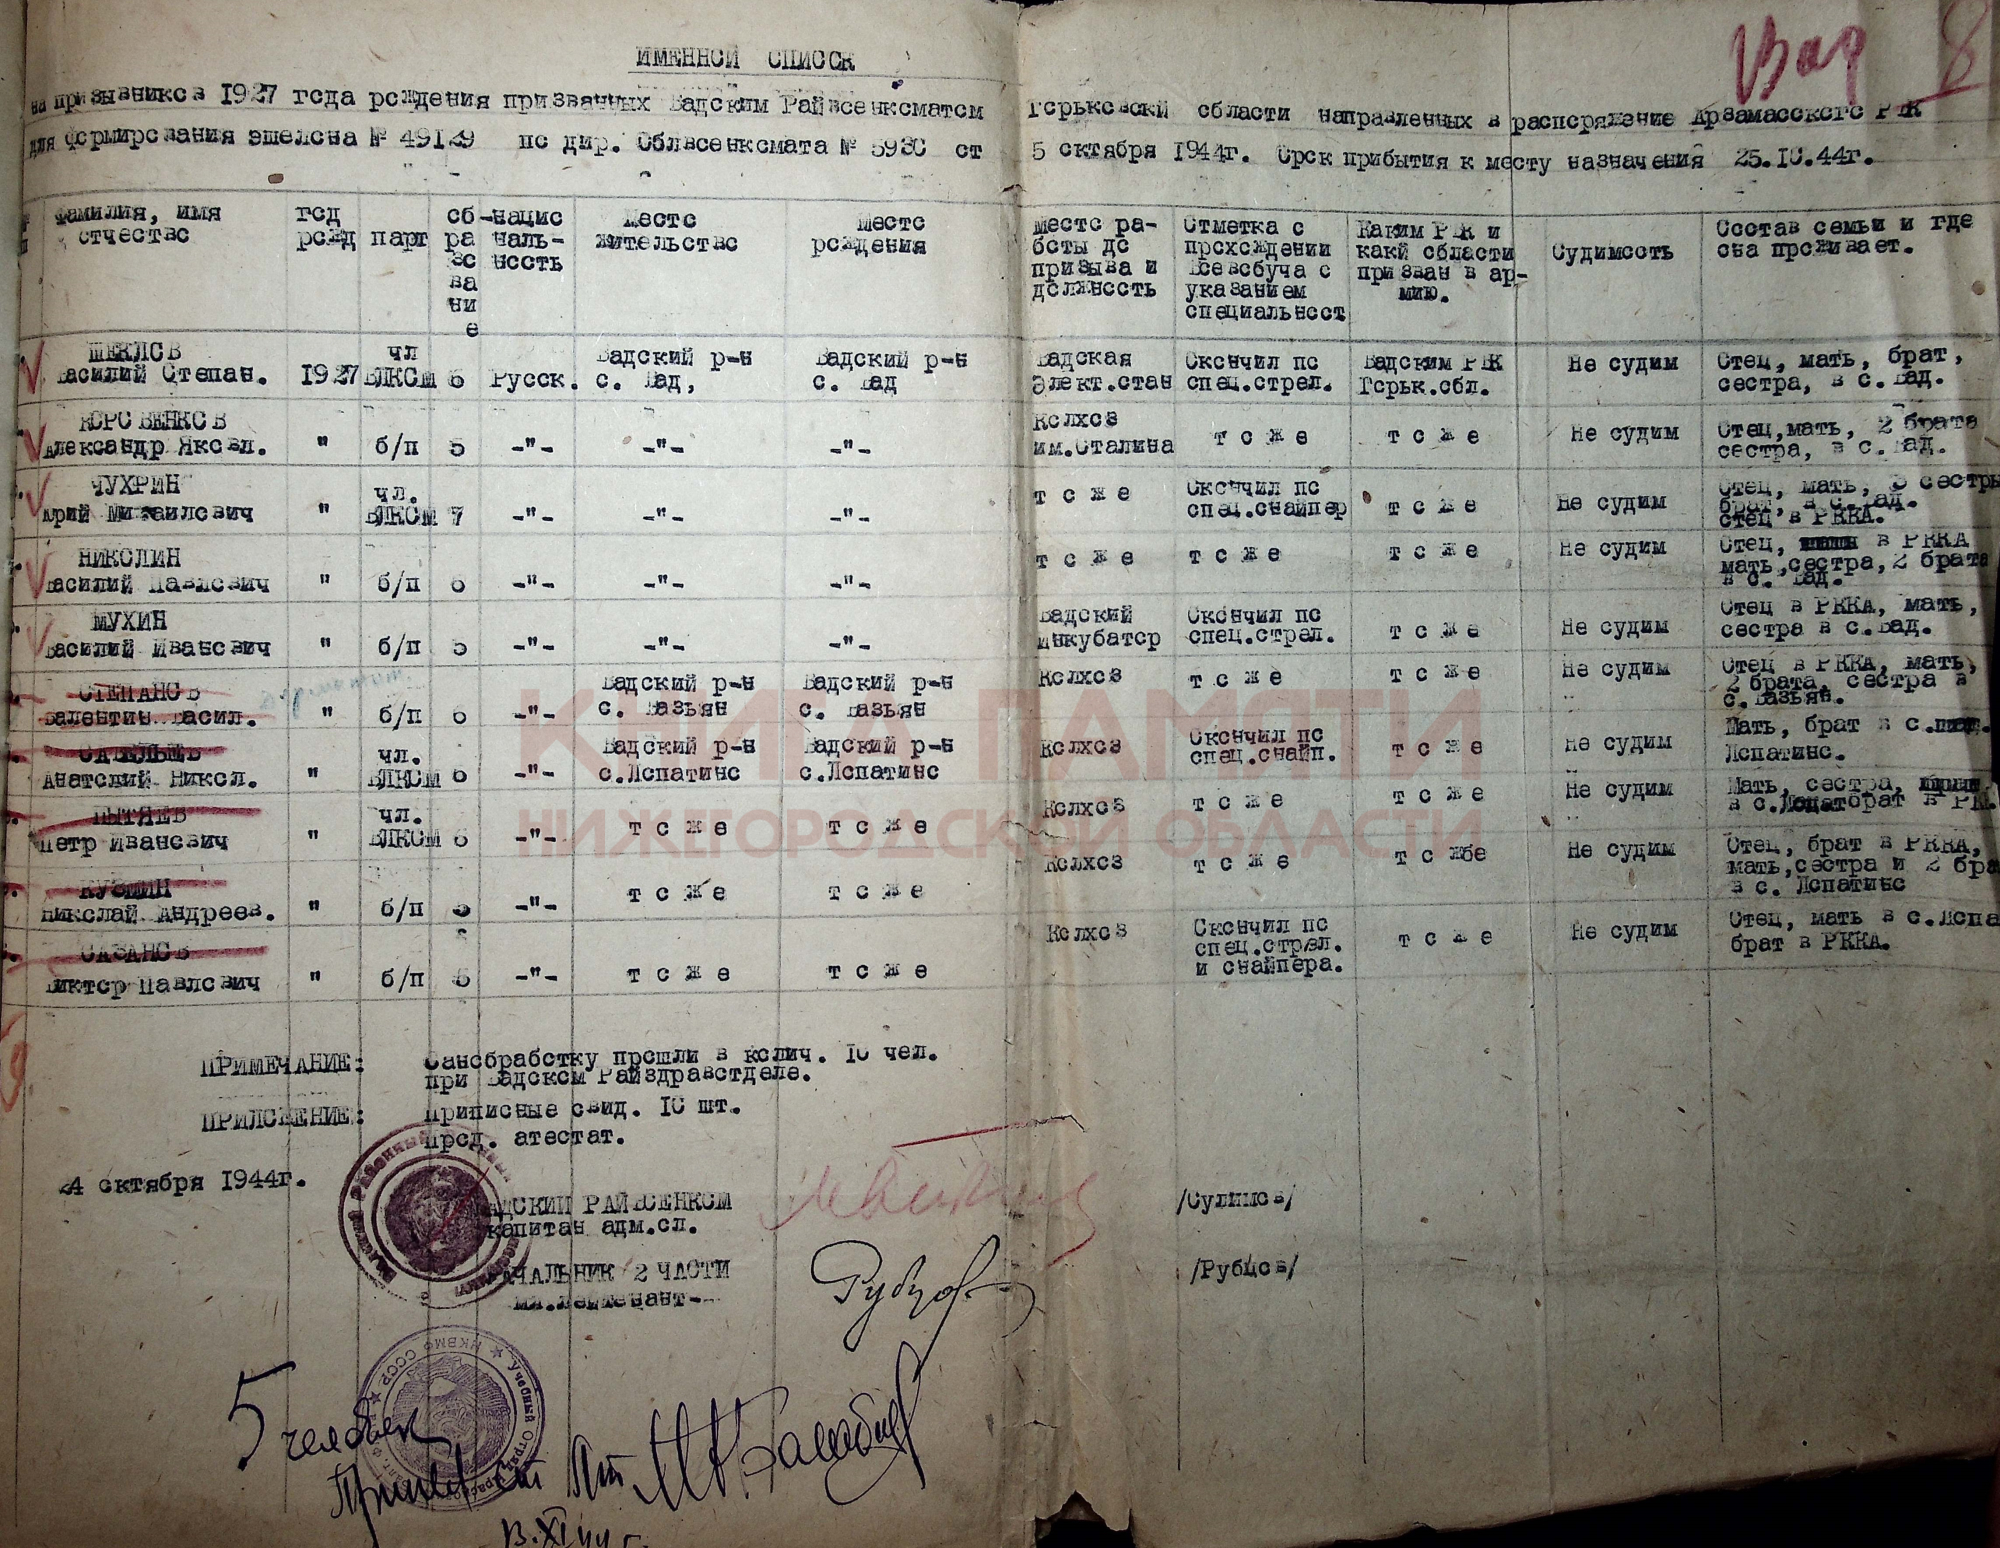 ИМЕННОЙ СПИСОК
на призывников 1927 года рождения призванных Вадским Райвоенкоматом Горьковской области направленных в распоряжение Арзамасского РВК
для формирования эшелона № 49129 по дир. Облвоенкомата № 5930 от 5 октября 1944г. Срок прибытия к месту назначения 25.10.44г.
Фамилия, имя отчество | год рожд | парт | об-ра зо ва ни е | нацио наль- ность | Место жительство | Место рождения | Место ра- боты до призыва и должность | Отметка о прохождении Всевобуча с указанием специальност | Каким РВК и какй области призван в ар- мию. | Судимость | Состав семьи и где она проживает.
ШЕКЛОВ Василий Степан. | 1927 | чл ВЛКСМ | 6 | Русск. | Вадский р-н с. Вад, | Вадский р-н с. Вад | Вадская Элект.стан | Окончил по спец.стрел. | Вадским РВК Горьк.обл. | Не судим | Отец, мать, брат, сестра, в с.Вад.
КОРОВЕНКОВ Александр Яковл. | " | б/п | 5 | -"- | -"- | -"- | Колхоз им.Сталина | т о ж е | т о ж е | Не судим | Отец,мать, 2 брата сестра, в с.Вад.
ЧУХРИН Юрий Михаилович | " | чл. ВЛКСМ | 7 | -"- | -"- | -"- | т о ж е | Окончил по спец.снайпер | т о ж е | Не судим | Отец, мать, 3 сестры брат, в с.Вад. отец в РККА.
НИКОЛИН Василий Павлович | " | б/п | 6 | -"- | -"- | -"- | т о ж е | т о ж е | т о ж е | Не судим | Отец, в РККА мать,сестра,2 брата в с. Вад.
МУХИН Василий Иванович | " | б/п | 5 | -"- | -"- | -"- | Вадский Инкубатор | Окончил по спец.стрел. | т о ж е | Не судим | Отец в РККА, мать, сестра в с.Вад.
СТЕПАНОВ Валентин Васил. | " | б/п | 6 | -"- | Вадский р-н с. Вазьян | Вадский р-н с. Вазьян | Колхоз | т о ж е | т о ж е | Не судим | Отец в РККА, мать, 2 брата, сестра в с.Вазьян.
САВЕЛЬЕВ Анатолий Никол. | " | чл. ВЛКСМ | 6 | -"- | Вадский р-н с.Лопатино | Вадский р-н с.Лопатино | Колхоз | Окончил по спец.снайп. | т о ж е | Не судим | Мать, брат в с. Лопатино.
ПЫТЯЕВ Петр Иванович | " | чл. ВЛКСМ | 6 | -"- | т о ж е | т о ж е | Колхоз | т о ж е | т о ж е | Не судим | Мать, сестра, в с.Лопат брат в РК
КУЗМИН Николай Андреев. | " | б/п | 5 | -"- | т о ж е | т о ж е | Колхоз | т о ж е | т о жбе | Не судим | Отец, брат в РККА, мать,сестра и 2 бра в с. Лопатино
САЗАНОВ Виктор Павлович | " | б/п | 5 | -"- | т о ж е | т о ж е | Колхоз | Окончил по спец.стрел. и снайпера. | т о ж е | Не судим | Отец, мать в с.Лопа брат в РККА.
ПРИМЕЧАНИЕ: Санобработку прошли в колич. 10 чел.
при Вадском Райздравотделе.
ПРИЛОЖЕНИЕ: Приписные свид. 10 шт.
прод. атестат.
24 октября 1944г.
ВАДСКИЙ РАЙВОЕНКОМ
капитан адм.сл. /Сулимов/
НАЧАЛЬНИК 2 ЧАСТИ
мл.лейтенант- Рубцов /Рубцов/
5 человек
Принял
КНИГА ПАМЯТИ
НИЖЕГОРОДСКОЙ ОБЛАСТИ